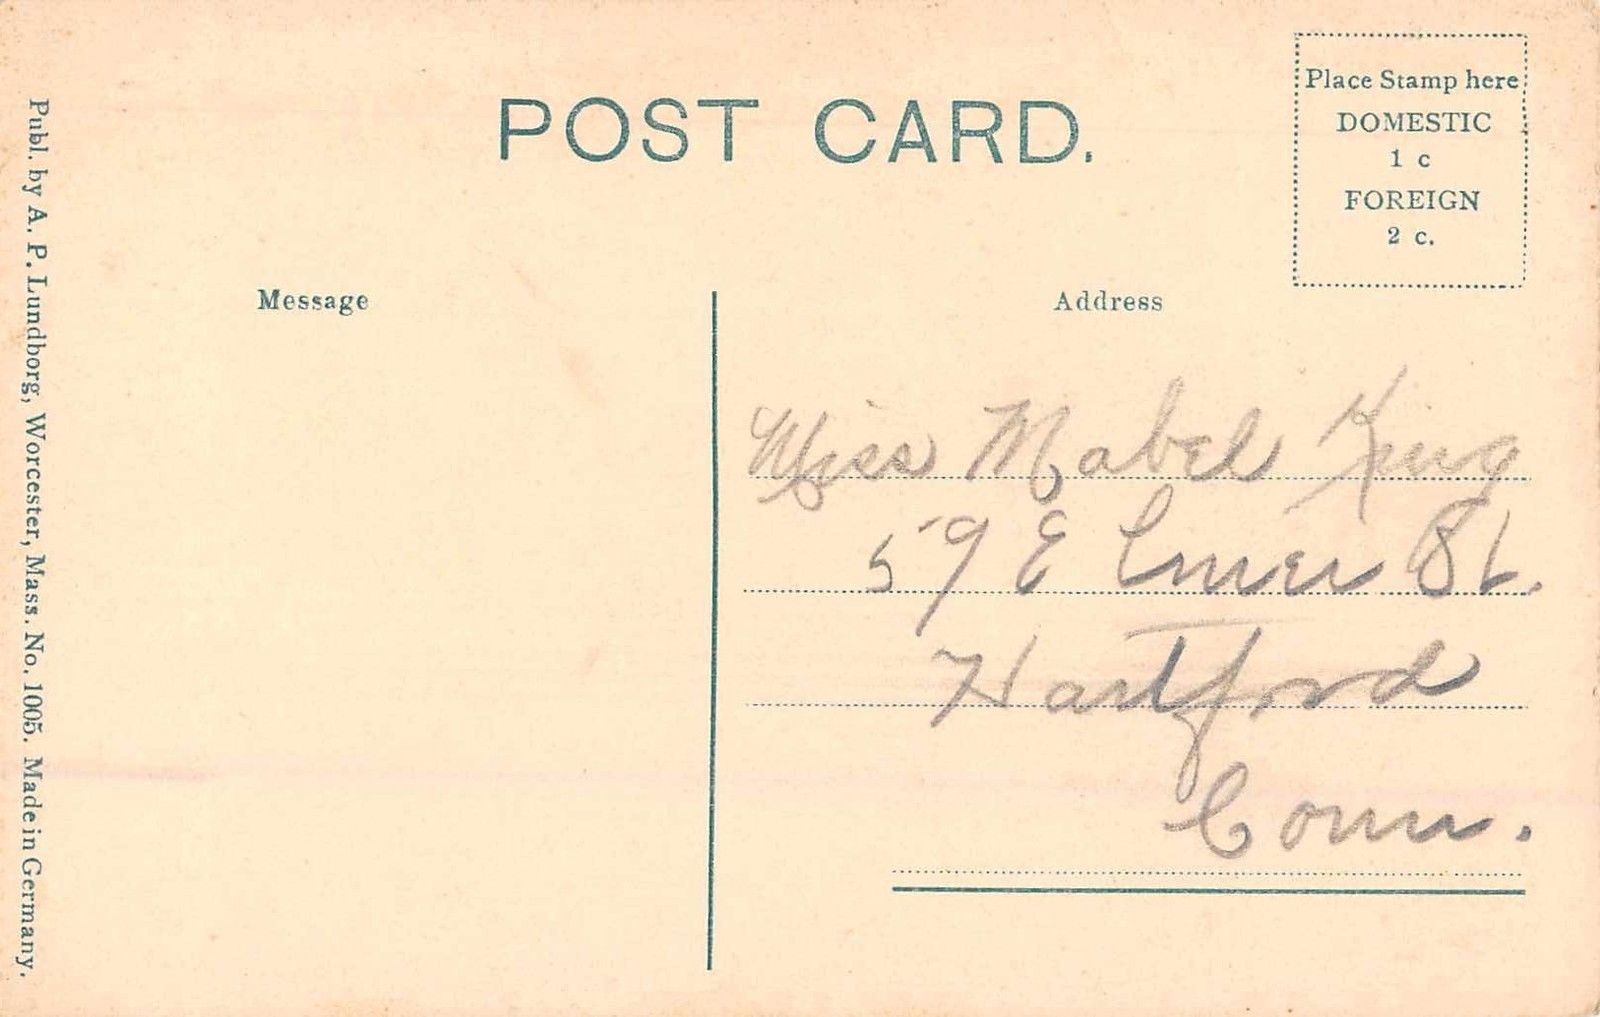 POST CARD.
Place Stamp here
DOMESTIC
1 c
FOREIGN
2 c.
Message
Address
Miss Mabel King
59 Elmer St.
Hartford
Conn.
Publ. by A. P. Lundborg, Worcester, Mass. No. 1005. Made in Germany.